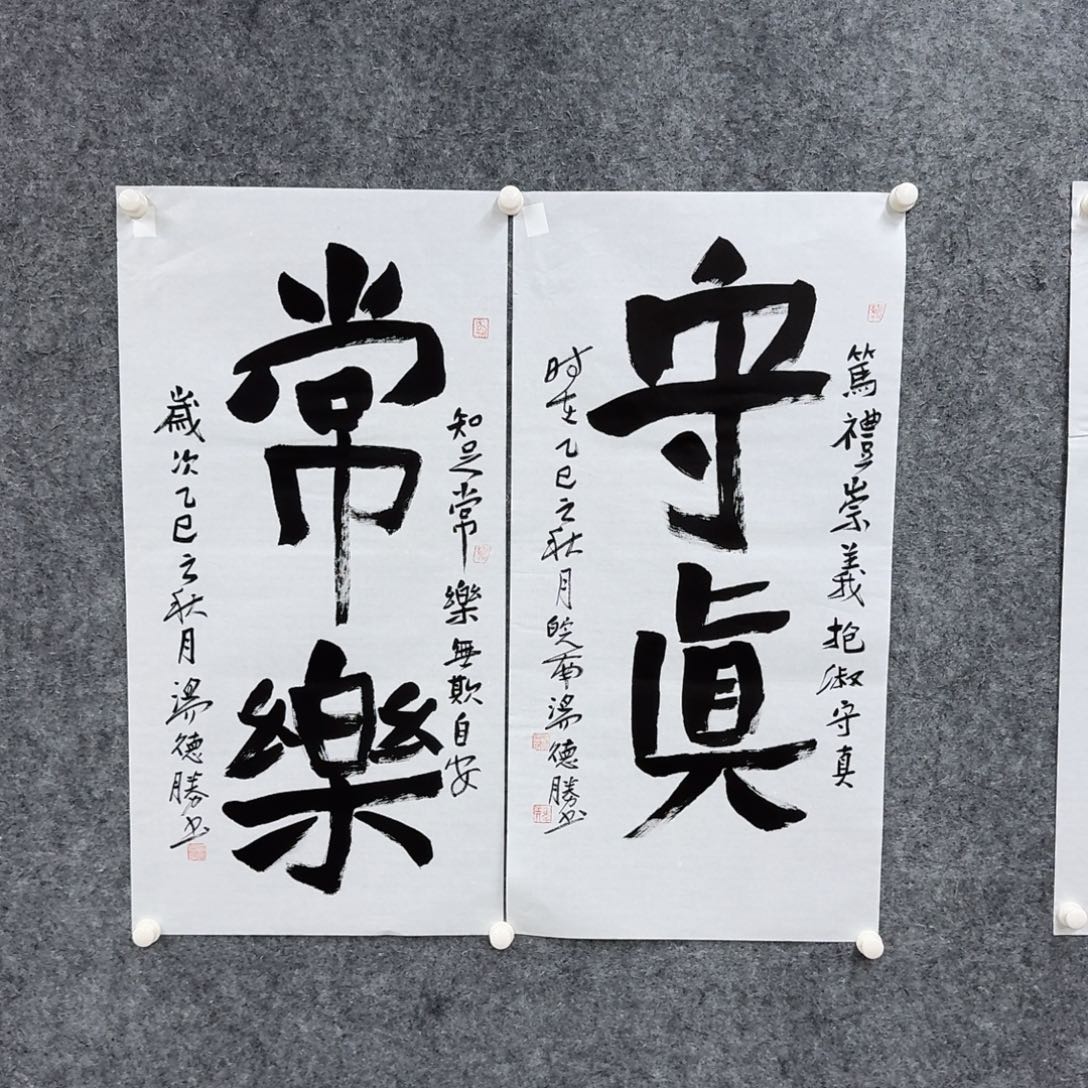 守眞
篤禮崇義抱淑守真
时在乙巳之秋月皖南湯德勝书
常樂
知足常樂無欺自安
歲次乙巳之秋月湯德勝书